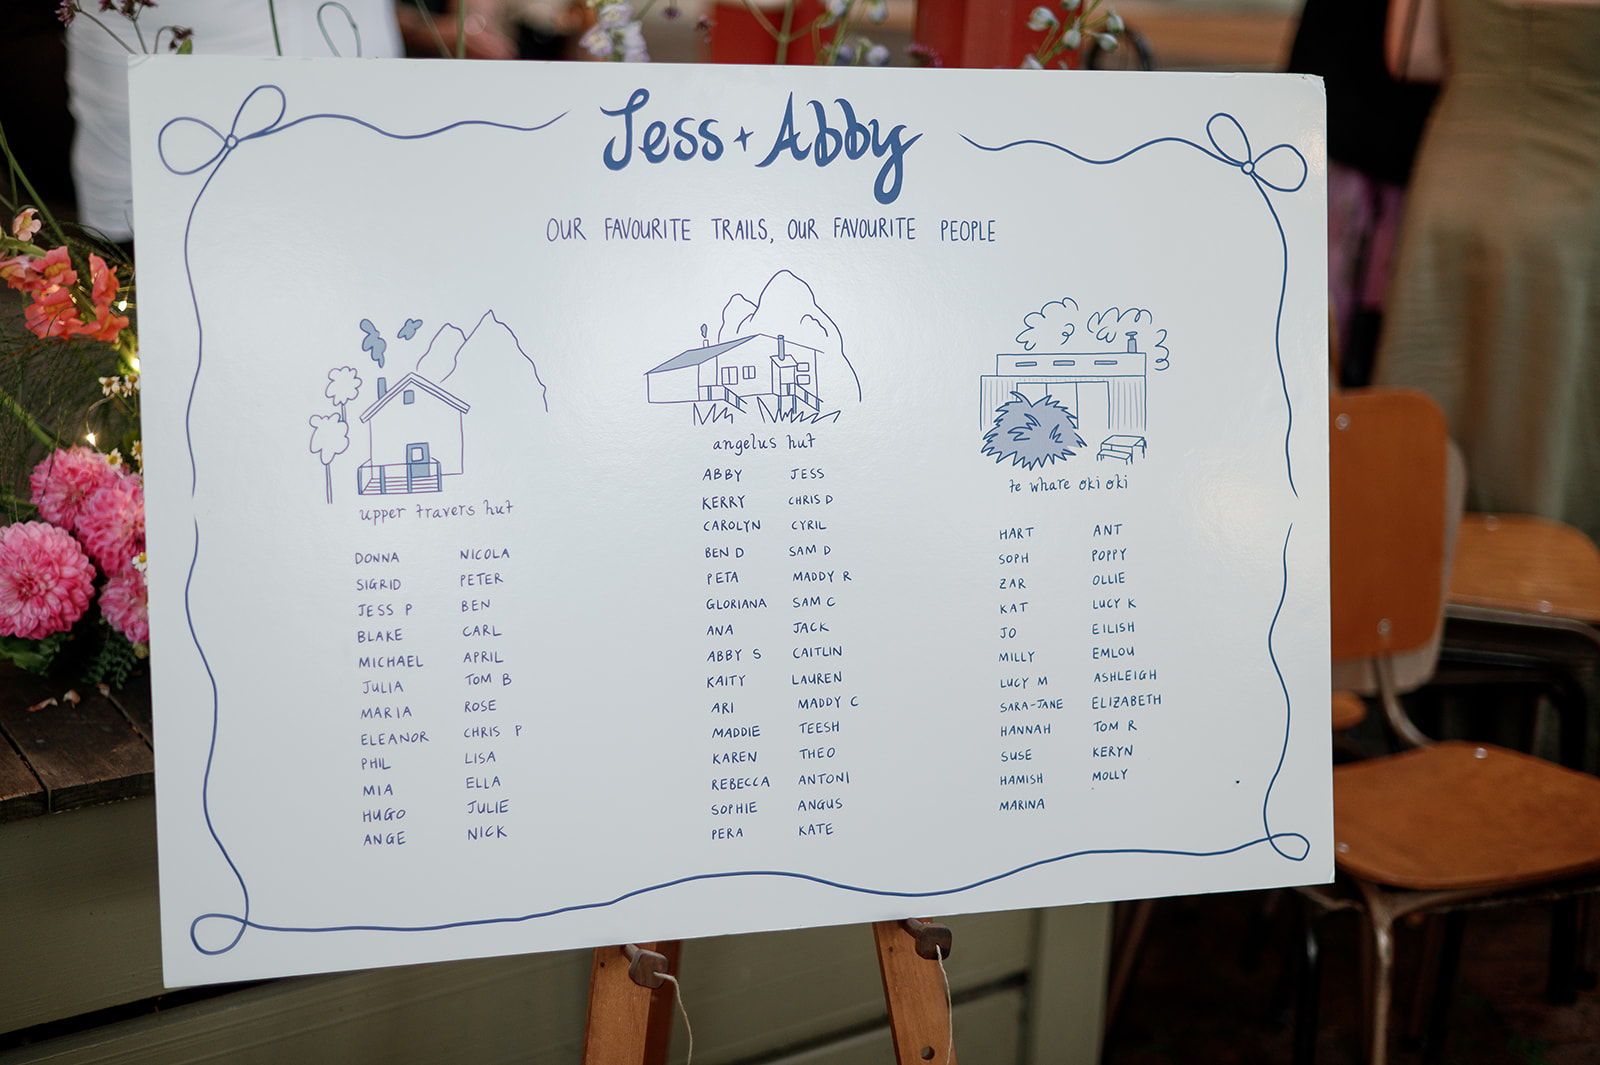 Jess + Abby
OUR FAVOURITE TRAILS, OUR FAVOURITE PEOPLE
upper travers hut
DONNA NICOLA
SIGRID PETER
JESS P BEN
BLAKE CARL
MICHAEL APRIL
JULIA TOM B
MARIA ROSE
ELEANOR CHRIS P
PHIL LISA
MIA ELLA
HUGO JULIE
ANGE NICK
angelus hut
ABBY JESS
KERRY CHRIS D
CAROLYN CYRIL
BEN D SAM D
PETA MADDY R
GLORIANA SAM C
ANA JACK
ABBY S CAITLIN
KAITY LAUREN
ARI MADDY C
MADDIE TEESH
KAREN THEO
REBECCA ANTONI
SOPHIE ANGUS
PERA KATE
te whare oki oki
HART ANT
SOPH POPPY
ZAR OLLIE
KAT LUCY K
JO EILISH
MILLY EMLOU
LUCY M ASHLEIGH
SARA-JANE ELIZABETH
HANNAH TOM R
SUSE KERYN
HAMISH MOLLY
MARINA